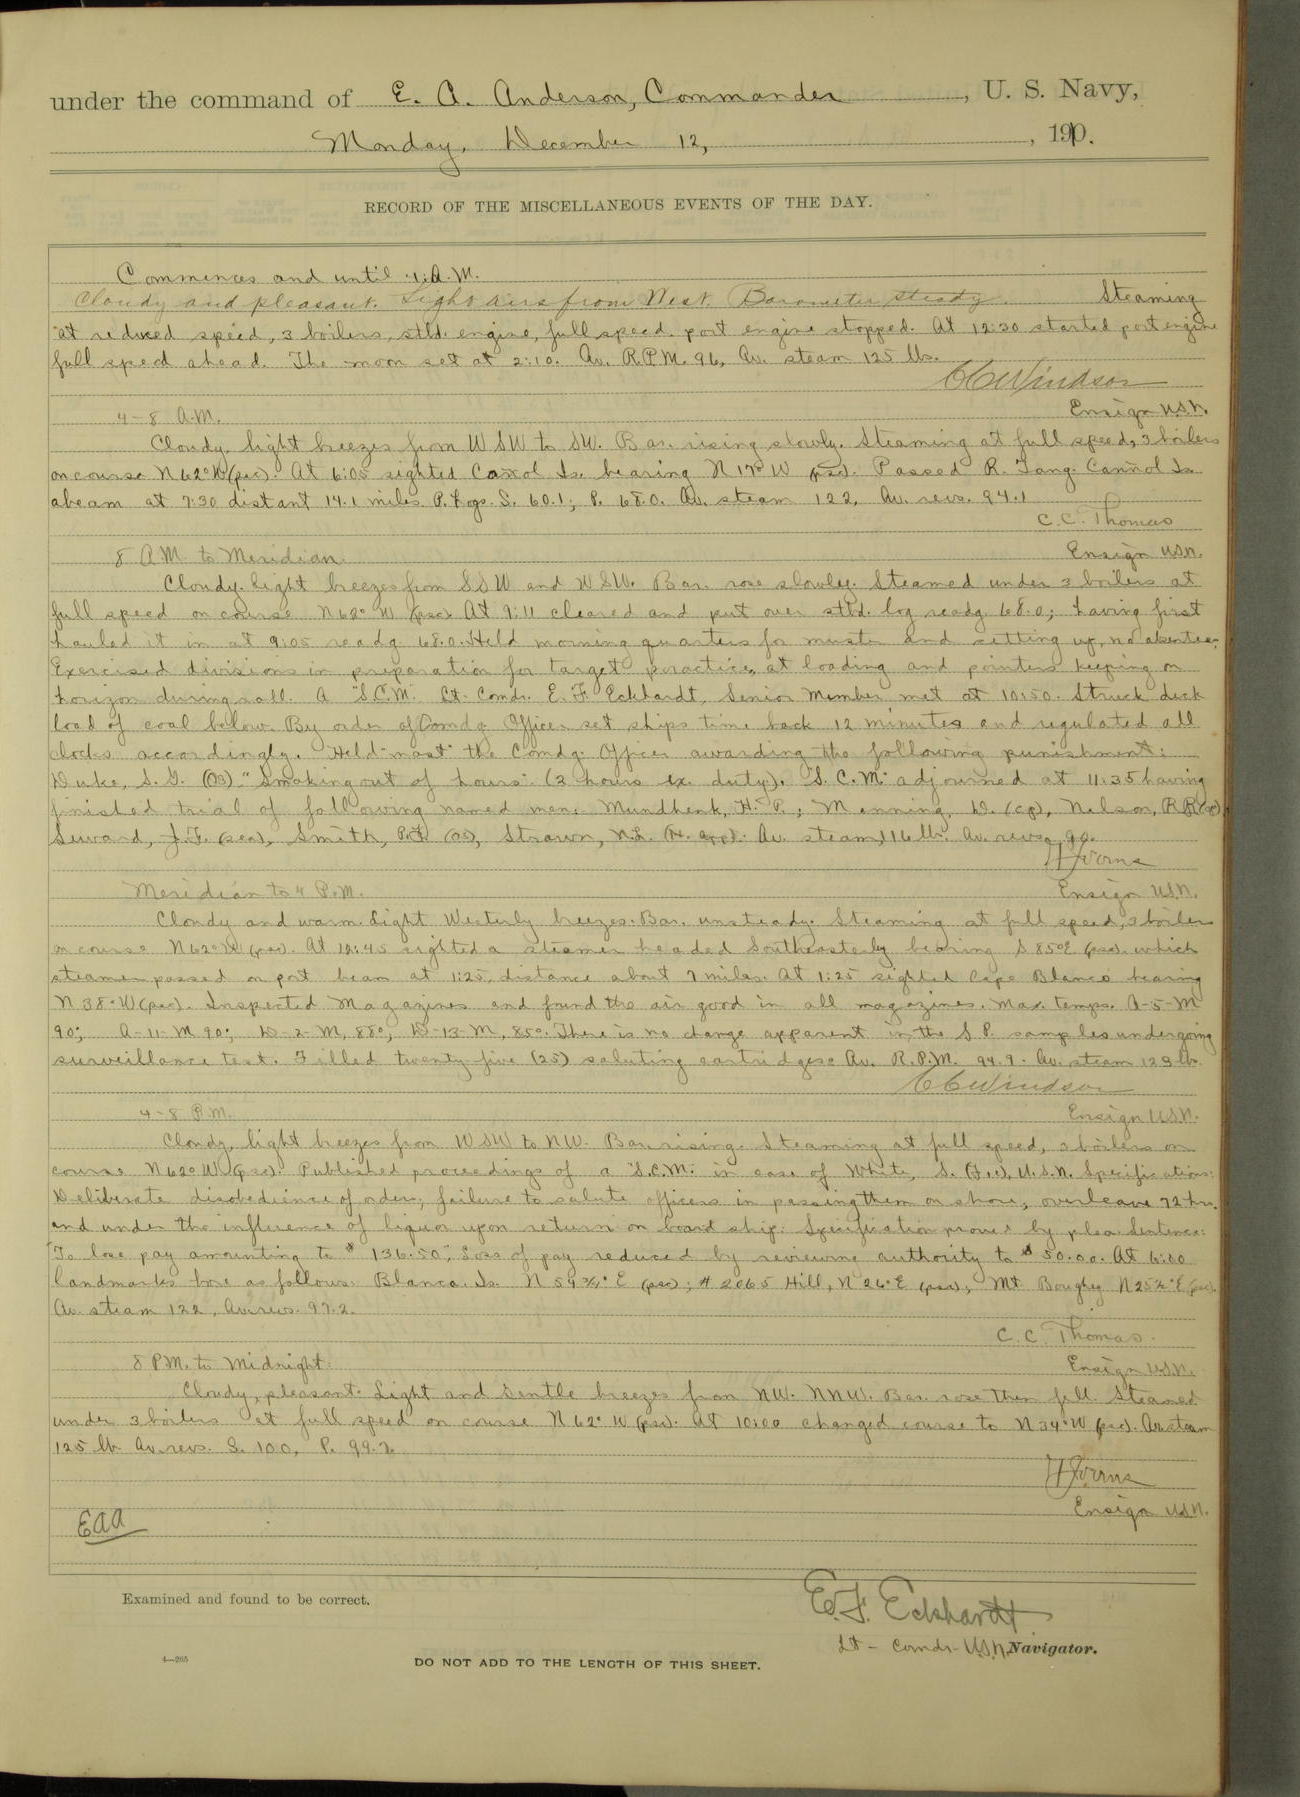 under the command of E. A. Anderson, Commander, U. S. Navy,
Monday, December 12, 1910.
RECORD OF THE MISCELLANEOUS EVENTS OF THE DAY.
Commences and until 4 A.M.
Cloudy and pleasant. Light airs from West. Barometer steady. Steaming
at reduced speed, 3 boilers, stbd. engine, full speed. port engine stopped. At 12:30 started port engine
full speed ahead. The moon set at 2:10. Av. R.P.M. 96, Av. steam 125 lbs.
CC Windsor
Ensign U.S.N.
4-8 A.M.
Cloudy, light breezes from WSW to SW. Bar. rising slowly. Steaming at full speed, 3 boilers
on course N62°W (psc). At 6:05 sighted Is. bearing N 17° W (psc). Passed R. Tang. Is.
abeam at 7:30 distant 14.1 miles P. Logs. S. 60.1; P. 68.0. Av. steam 122, Av. revs. 94.1
C. C. Thomas
Ensign USN.
8 A.M. to Meridian.
Cloudy. light breezes from SSW and WSW. Bar. rose slowly. Steamed under 3 boilers at
full speed on course N 62° W (psc) At 9:11 cleared and put over stbd. log readg. 68.0; having first
hauled it in at 9:05 readg. 68.0. Held morning quarters for muster and setting up, no absentees.
Exercised divisions in preparation for target practice, at loading and pointers keeping on
horizon during roll. A "S.C.M." Lt. Comdr. E. F. Eckhardt, Senior Member met at 10:50. Struck deck
load of coal below. By order of Comdg Officer set ships time back 12 minutes and regulated all
clocks accordingly. Held "mast" the Comdg. Officer awarding the following punishment:
Duke, S. G. (OS) "Smoking out of hours" (3 hours ex. duty). "S.C.M." adjourned at 11:35 having
finished trial of following named men: Mundhenk, H. P.; Manning, D. (cp), Nelson,
Seward, J.F. (sea), Smith, (OS), Strawn, Av. steam, 116 lb. Av. revs. 90.
Ensign USN.
Meridian to 4 P.M.
Cloudy and warm. Light Westerly breezes. Bar. unsteady. Steaming at full speed, 3 boilers
on course N62°W (psc). At 12:45 sighted a steamer headed Southeasterly bearing S 85°E (psc) which
steamer passed on port beam at 1:25, distance about 7 miles. At 1:25 sighted Cape Blanco bearing
N 38° W (psc). Inspected Magazines and found the air good in all magazines. Max. temps. A-5-M
90°, A-11-M 90°, D-2-M, 88°, D-13-M, 85°. There is no change apparent in the S.P. samples undergoing
surveillance test. Filled twenty-five (25) saluting cartridges. Av. R.P.M. 94.9. Av. steam 123 lb.
CC Windsor
Ensign U.S.N.
4-8 P.M.
Cloudy, light breezes from WSW to NW. Bar. rising. Steaming at full speed, 3 boilers on
course N 62° W (psc). Published proceedings of a "S.C.M." in case of White, S. U.S.N. Specifications:
Deliberate disobedience of orders; failure to salute officers in passing them on shore, overleave 72 hrs.
and under the influence of liquor upon return on board ship. Specification proved by plea. Sentence:
"To lose pay amounting to $136.50", Loss of pay reduced by reviewing authority to $50.00. At 6:00
landmarks bore as follows: Blanca Is. N 59¾° E (psc); # 2065 Hill, N 26° E (psc), Mt. N25½°E (psc).
Av. steam 122, Av. revs. 97.2.
C. C. Thomas.
Ensign USN.
8 P.M. to Midnight.
Cloudy, pleasant. Light and gentle breezes from NW. NNW. Bar. rose then fell. Steamed
under 3 boilers at full speed on course N 62° W (psc). At 10:00 changed course to N 34° W (psc). Av. steam
125 lb. Av. revs. S. 100, P. 99.2.
Ensign USN.
EAA
Examined and found to be correct.
E. F. Eckhardt
Lt - Comdr - U.S.N. Navigator.
4—265
DO NOT ADD TO THE LENGTH OF THIS SHEET.